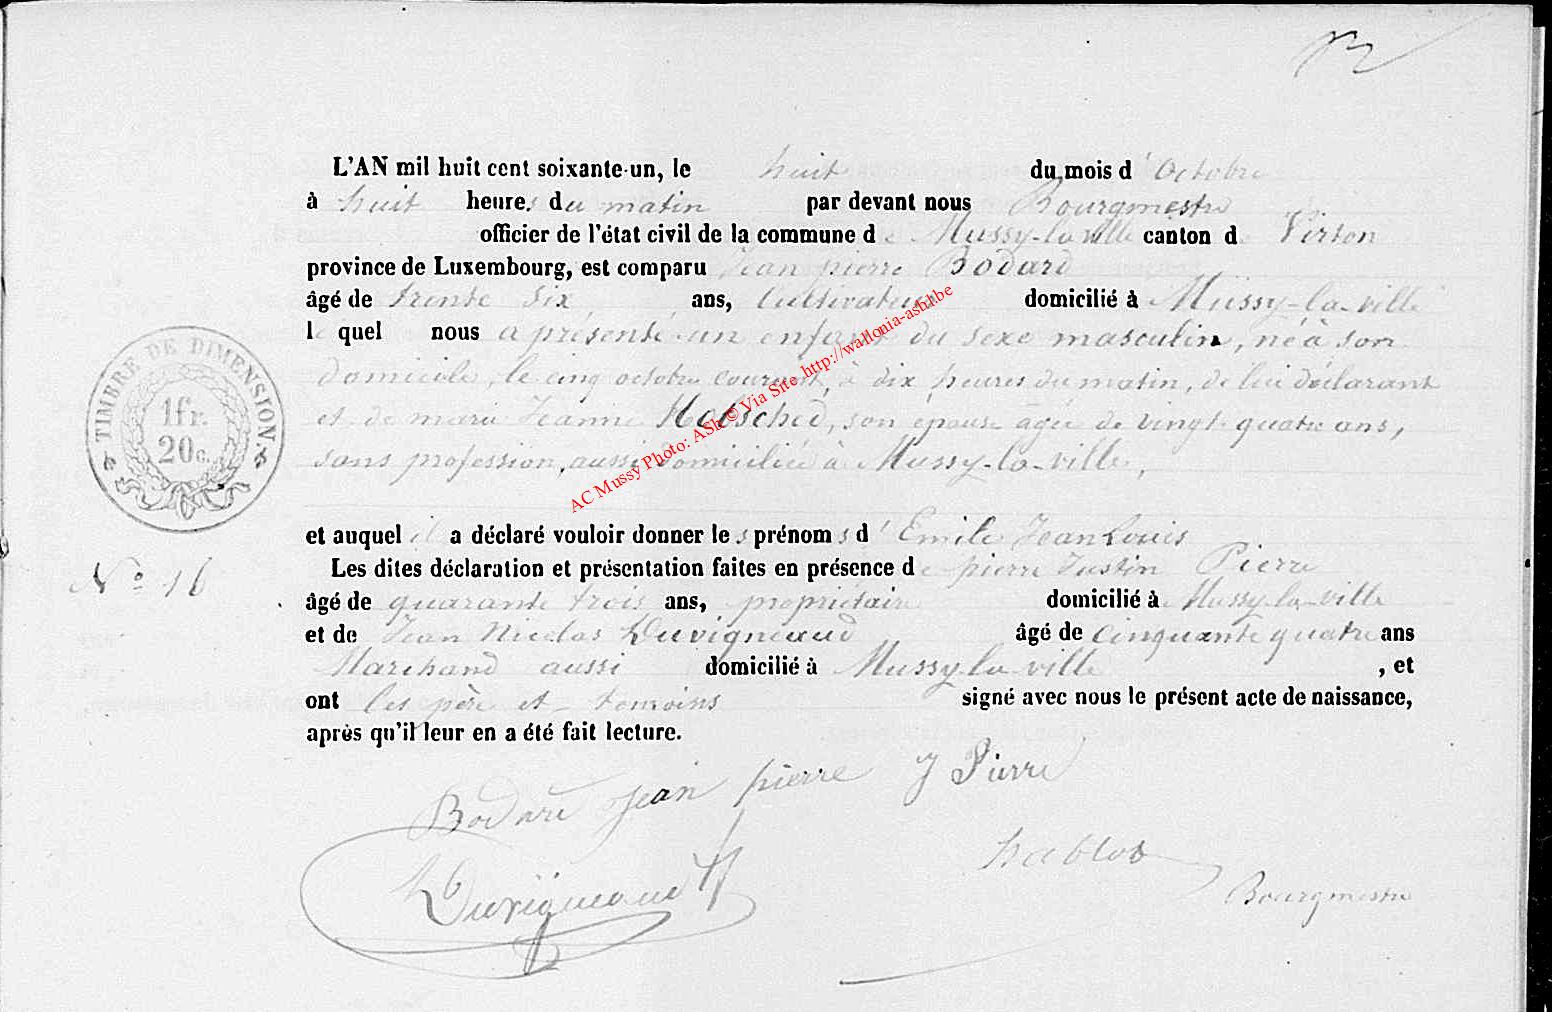 L'AN mil huit cent soixante-un, le huit du mois d'Octobre
à huit heures du matin par devant nous Bourgmestre
officier de l'état civil de la commune de Mussy-la-ville canton de Virton
province de Luxembourg, est comparu Jean pierre Bodard
âgé de trente six ans, Cultivateur domicilié à Mussy-la-ville
le quel nous a présenté un enfant du sexe masculin, né à son
domicile, le cinq octobre courant, à dix heures du matin, de lui déclarant
et de marie Jeanne Hobsched, son épouse agée de vingt quatre ans,
sans profession, aussi domiciliée à Mussy-la-ville,
TIMBRE DE DIMENSION.
1fr.
20c.
AC Mussy Photo: ASh © Via Site http://wallonia-ash1.be
et auquel il a déclaré vouloir donner les prénoms d'Emile Jean Louis
Les dites déclaration et présentation faites en présence de pierre Justin Pierre
N° 16
âgé de quarante trois ans, propriétaire domicilié à Mussy-la-ville
et de Jean Nicolas Duvigneaud âgé de cinquante quatre ans
Marchand aussi domicilié à Mussy-la-ville, et
ont les père et temoins signé avec nous le présent acte de naissance,
après qu'il leur en a été fait lecture.
Bodard Jean pierre J Pierre
Duvigneaud
Bourgmestre